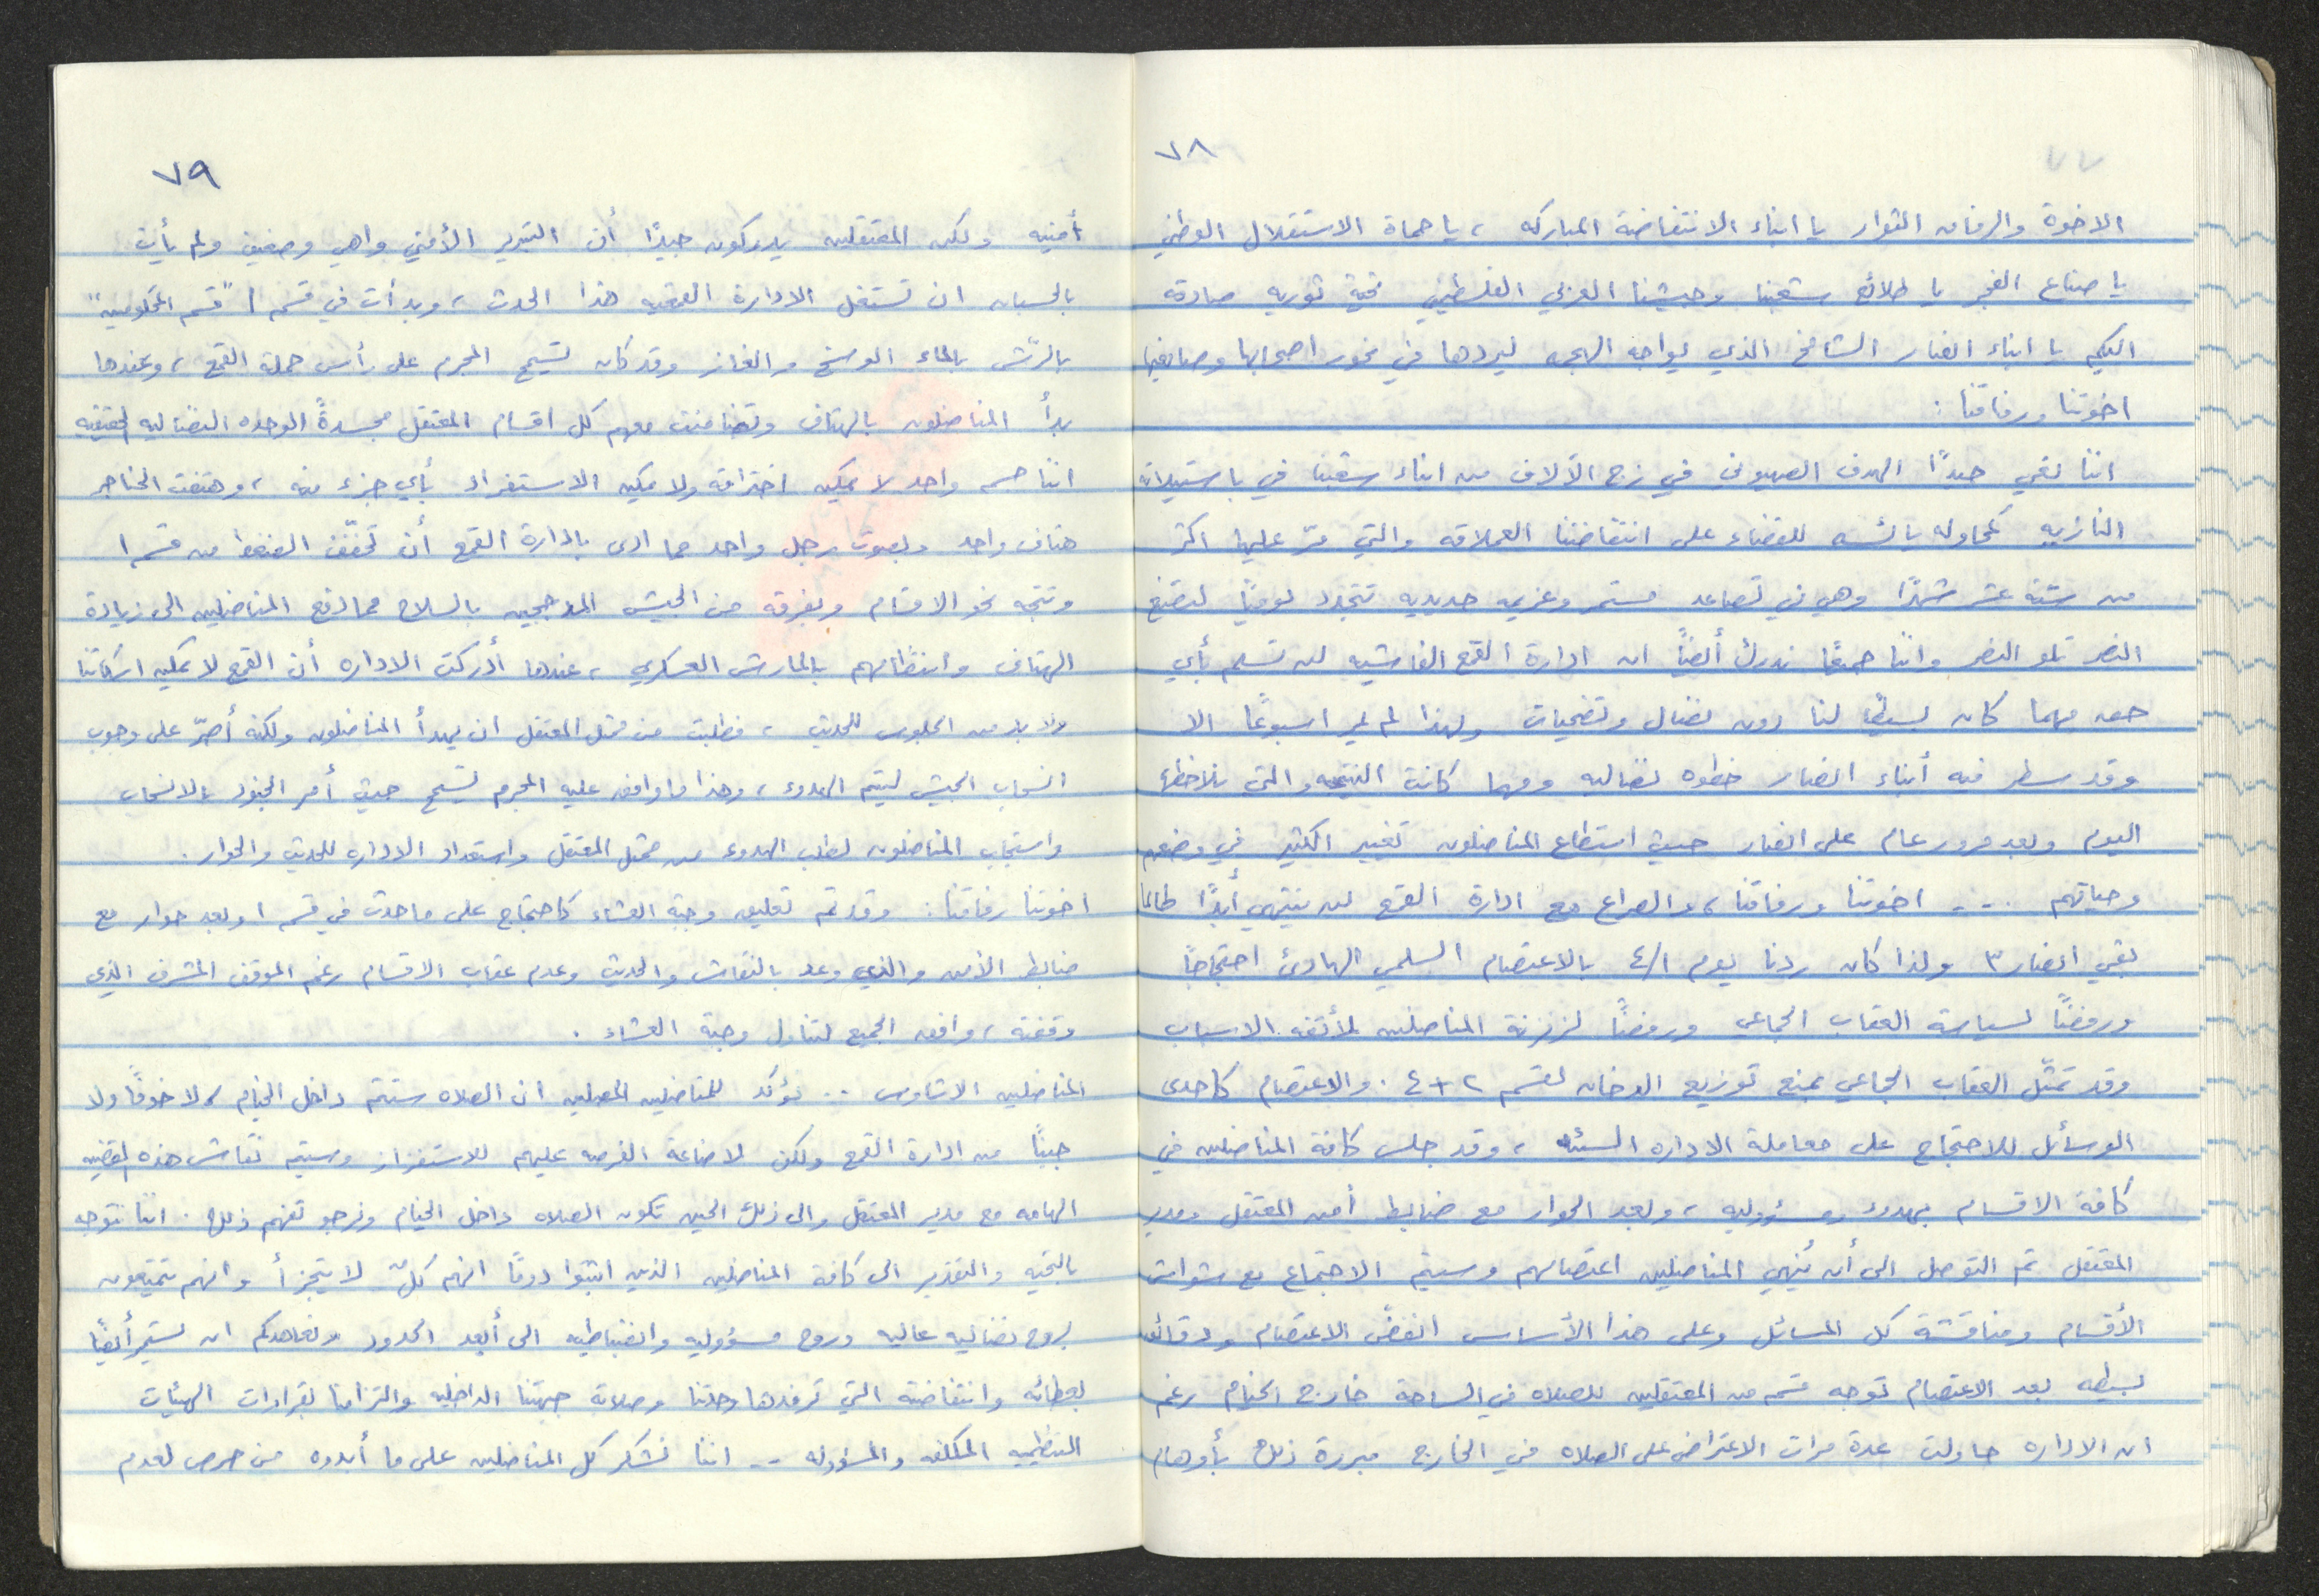 ٧٨
الاخوة والرفاق الثوار يا ابناء الانتفاضة المباركه ، يا حماة الاستقلال الوطني
يا صناع الفجر يا طلائع شعبنا وجيشنا العربي الفلسطيني تحية ثوريه صادقه
اليكم يا ابناء انصار الشامخ الذي يواجه الهجمه ليردها في نحور اصحابها وصانعيها
اخوتنا ورفاقنا :
اننا نعي جيدًا الهدف الصهيوني في زج الآلاف من ابناء شعبنا في باستيلات
النازيه كمحاوله يائسه للقضاء على انتفاضتنا العملاقه والتي مرّ عليها اكثر
من ستة عشر شهرًا وهي في تصاعد مستمر وعزيمه حديديه تتجدد يوميًا لتصنع
النصر تلو النصر واننا جميعًا ندرك أيضًا ان ادارة القمع الفاشيه لن تسلم بأي
حق مهما كان بسيطًا لنا دون نضال وتضحيات ولهذا لم يمر اسبوعًا الا
وقد سطر فيه أبناء انصار خطوه نضاليه ومهما كانت النتيجه والتي نلاحظها
اليوم وبعد مرور عام على انصار حيث استطاع المناضلون تغيير الكثير في وضعهم
وحياتهم .... اخوتنا ورفاقنا ، والصراع مع ادارة القمع لن ينتهي أبدًا طالما
بقي انصار ٣ ولذا كان ردنا يوم ٤/١ بالاعتصام السلمي الهادئ احتجاجًا
ورفضًا لسياسة العقاب الجماعي ورفضًا لزنزنة المناضلين لأتفه الاسباب
وقد تمثّل العقاب الجماعي بمنع توزيع الدخان لقسم ٢ + ٤ . والاعتصام كاحدى
الوسائل للاحتجاج على معاملة الاداره السيئه ، وقد جلس كافة المناضلين في
كافة الاقسام بهدوء ومسؤوليه ، وبعد الحوار مع ضابط أمن المعتقل ومدير
المعتقل تم التوصل الى أن يُنهي المناضلين اعتصامهم وسيتم الاجتماع مع شواتيش
الأقسام ومناقشة كل المسائل وعلى هذا الأساس انفضّ الاعتصام ولدقائق
بسيطه بعد الاعتصام توجه قسم من المعتقلين للصلاه في الساحة خارج الخيام رغم
ان الاداره حاولت عدة مرات الاعتراض على الصلاه في الخارج مبررة ذلك بأوهام
٧٩
أمنيه ولكن المعتقلين يدركون جيدًا أن التبرير الأمني واهي وضعيف ولم يأت
بالحسبان ان تستغل الادارة القمعيه هذا الحدث ، وبدأت في قسم ١ "قسم المحكومين"
بالرّش بالماء الوسخ والغاز وقد كان تسيمح المجرم على رأس حملة القمع ، وعندها
بدأ المناضلون بالهتاف وتضامنت معهم كل اقسام المعتقل مجسدةً الوحده النضاليه الحقيقيه
اننا جسم واحد لا يمكن اختراقه ولا يمكن الاستفراد بأي جزء منه ، وهتفت الحناجر
هتاف واحد وبصوت رجل واحد مما ادى بادارة القمع أن تخفّف الضغط من قسم ١
وتتجه نحو الاقسام وبفرقه من الجيش المدججين بالسلاح مما دفع المناضلين الى زيادة
الهتاف وانتظامهم بالمارش العسكري ، عندها أدركت الاداره أن القمع لا يمكن اسكاتنا
ولا بد من الجلوس للحديث ، فطلبت من ممثل المعتقل ان يهدأ المناضلون ولكنه أصرّ على وجوب
انسحاب الجيش ليتم الهدوء ، وهذا ما وافق عليه المجرم تسيمح حيث أمر الجنود بالانسحاب
واستجاب المناضلون لطلب الهدوء من ممثل المعتقل واستعداد الاداره للحديث والحوار .
اخوتنا رفاقنا : وقد تم تعليق وجبة العشاء كاحتجاج على ما حدث في قسم ١ وبعد حوار مع
ضابط الأمن والذي وعد بالنقاش والحديث وعدم عقاب الاقسام رغم الموقف المشرف الذي
وقفته ، وافق الجميع لتناول وجبة العشاء .
المناضلين الاشاوس .. نؤكد للمناضلين المصلين ان الصلاه ستتم داخل الخيام لا خوفًا ولا
جبنًا من ادارة القمع ولكن لاضاعة الفرصه عليهم للاستفزاز وسيتم نقاش هذه القضيه
الهامه مع مدير المعتقل والى ذلك الحين تكون الصلاه داخل الخيام ونرجو تفهم ذلك . اننا نتوجه
بالتحيه والتقدير الى كافة المناضلين الذين اثبتوا دومًا انهم كلٌ لا يتجزأ وانهم يتمتعون
بروح نضاليه عاليه وروح مسؤوليه وانضباطيه الى أبعد الحدود ونعاهدكم ان نستمر أيضًا
بعطائه وانتفاضته التي ترفدها وحدتنا وصلابة جبهتنا الداخليه والتزامنا بقرارات الهيئات
التنظيميه المكلفه والمسؤوله .. اننا نشكر كل المناضلين على ما أبدوه من حرص لعدم